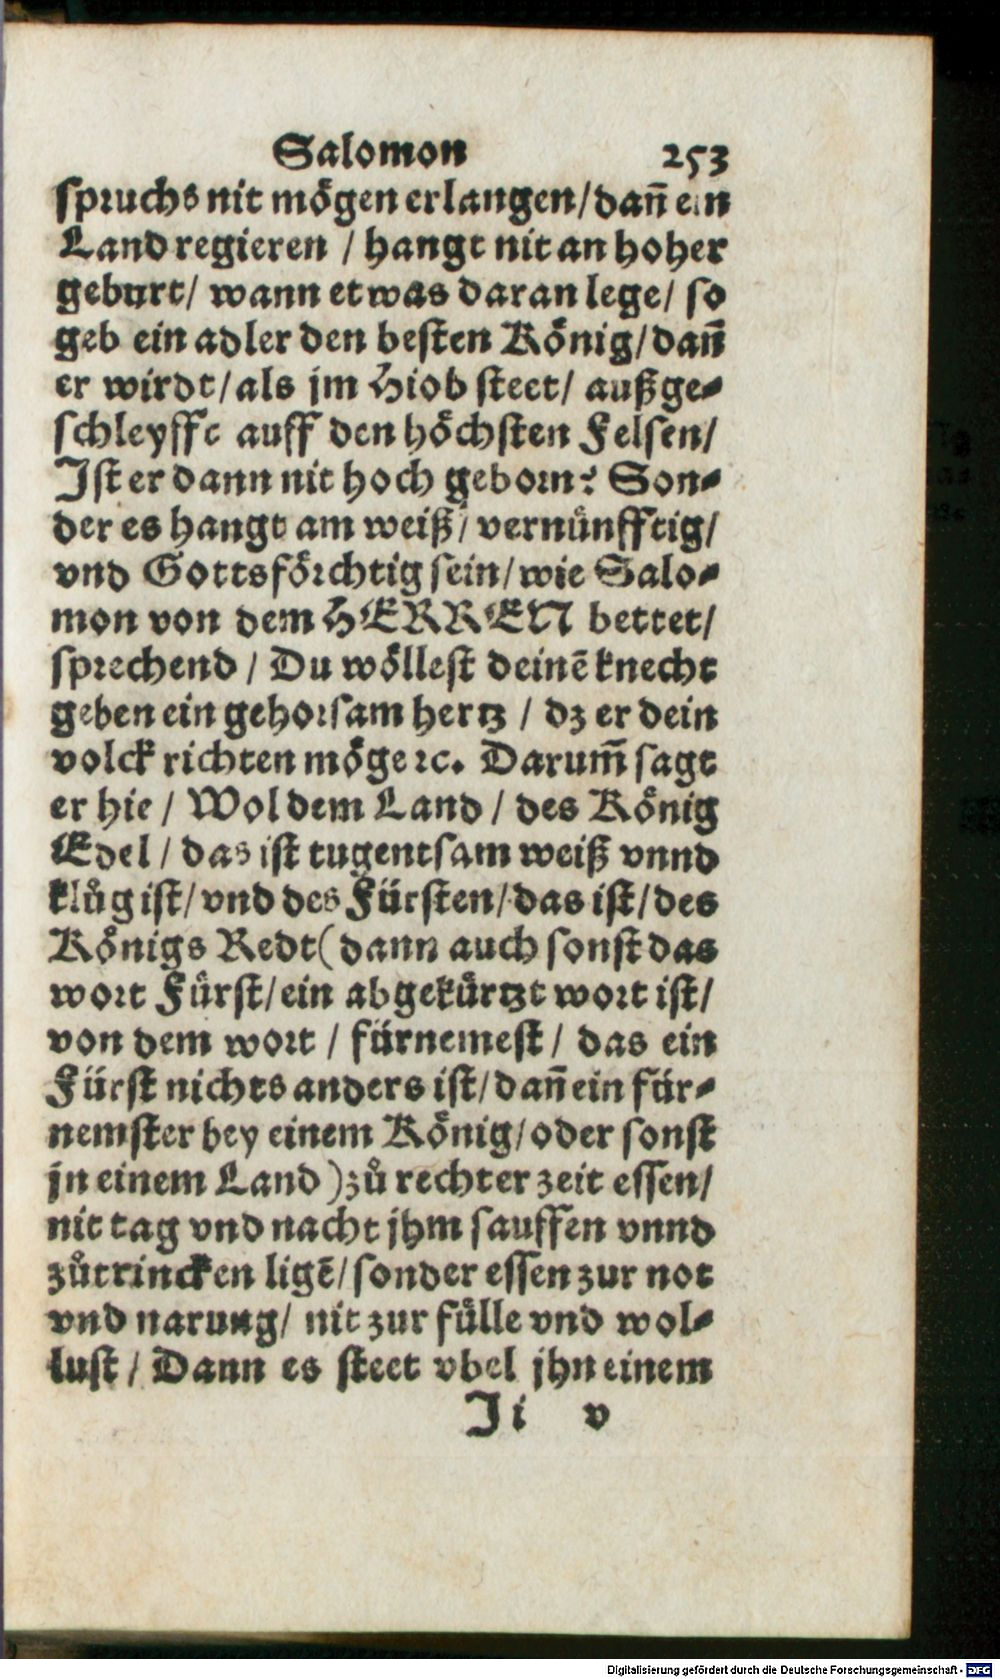 Salomon 253
spruchs nit mögen erlangen/dañ ein
Land regieren / hangt nit an hoher
geburt/ wann etwas daran lege/ so
geb ein adler den besten König/dañ
er wirdt/als jm Hiob steet/ außge-
schleyfft auff den höchsten Felsen/
Ist er dann nit hoch geborn? Son-
der es hangt am weiß/ vernünfftig/
vnd Gottsförchtig sein/wie Salo-
mon von dem HERREN bettet/
sprechend / Du wöllest deinē knecht
geben ein gehorsam hertz / dz er dein
volck richten möge ꝛc. Darum̃ sagt
er hie / Wol dem Land / des König
Edel / das ist tugentsam weiß vnnd
klůg ist/ vnd des Fürsten/das ist/des
Königs Redt(dann auch sonst das
wort Fürst/ein abgekürtzt wort ist/
von dem wort / fürnemest / das ein
Fürst nichts anders ist/dañ ein für-
nemster bey einem König/oder sonst
jn einem Land)zů rechter zeit essen/
nit tag vnd nacht jhm sauffen vnnd
zůtrincken ligē/sonder essen zur not
vnd narung/ nit zur fülle vnd wol-
lust / Dann es steet vbel jhn einem
Ii v
Digitalisierung gefördert durch die Deutsche Forschungsgemeinschaft - DFG